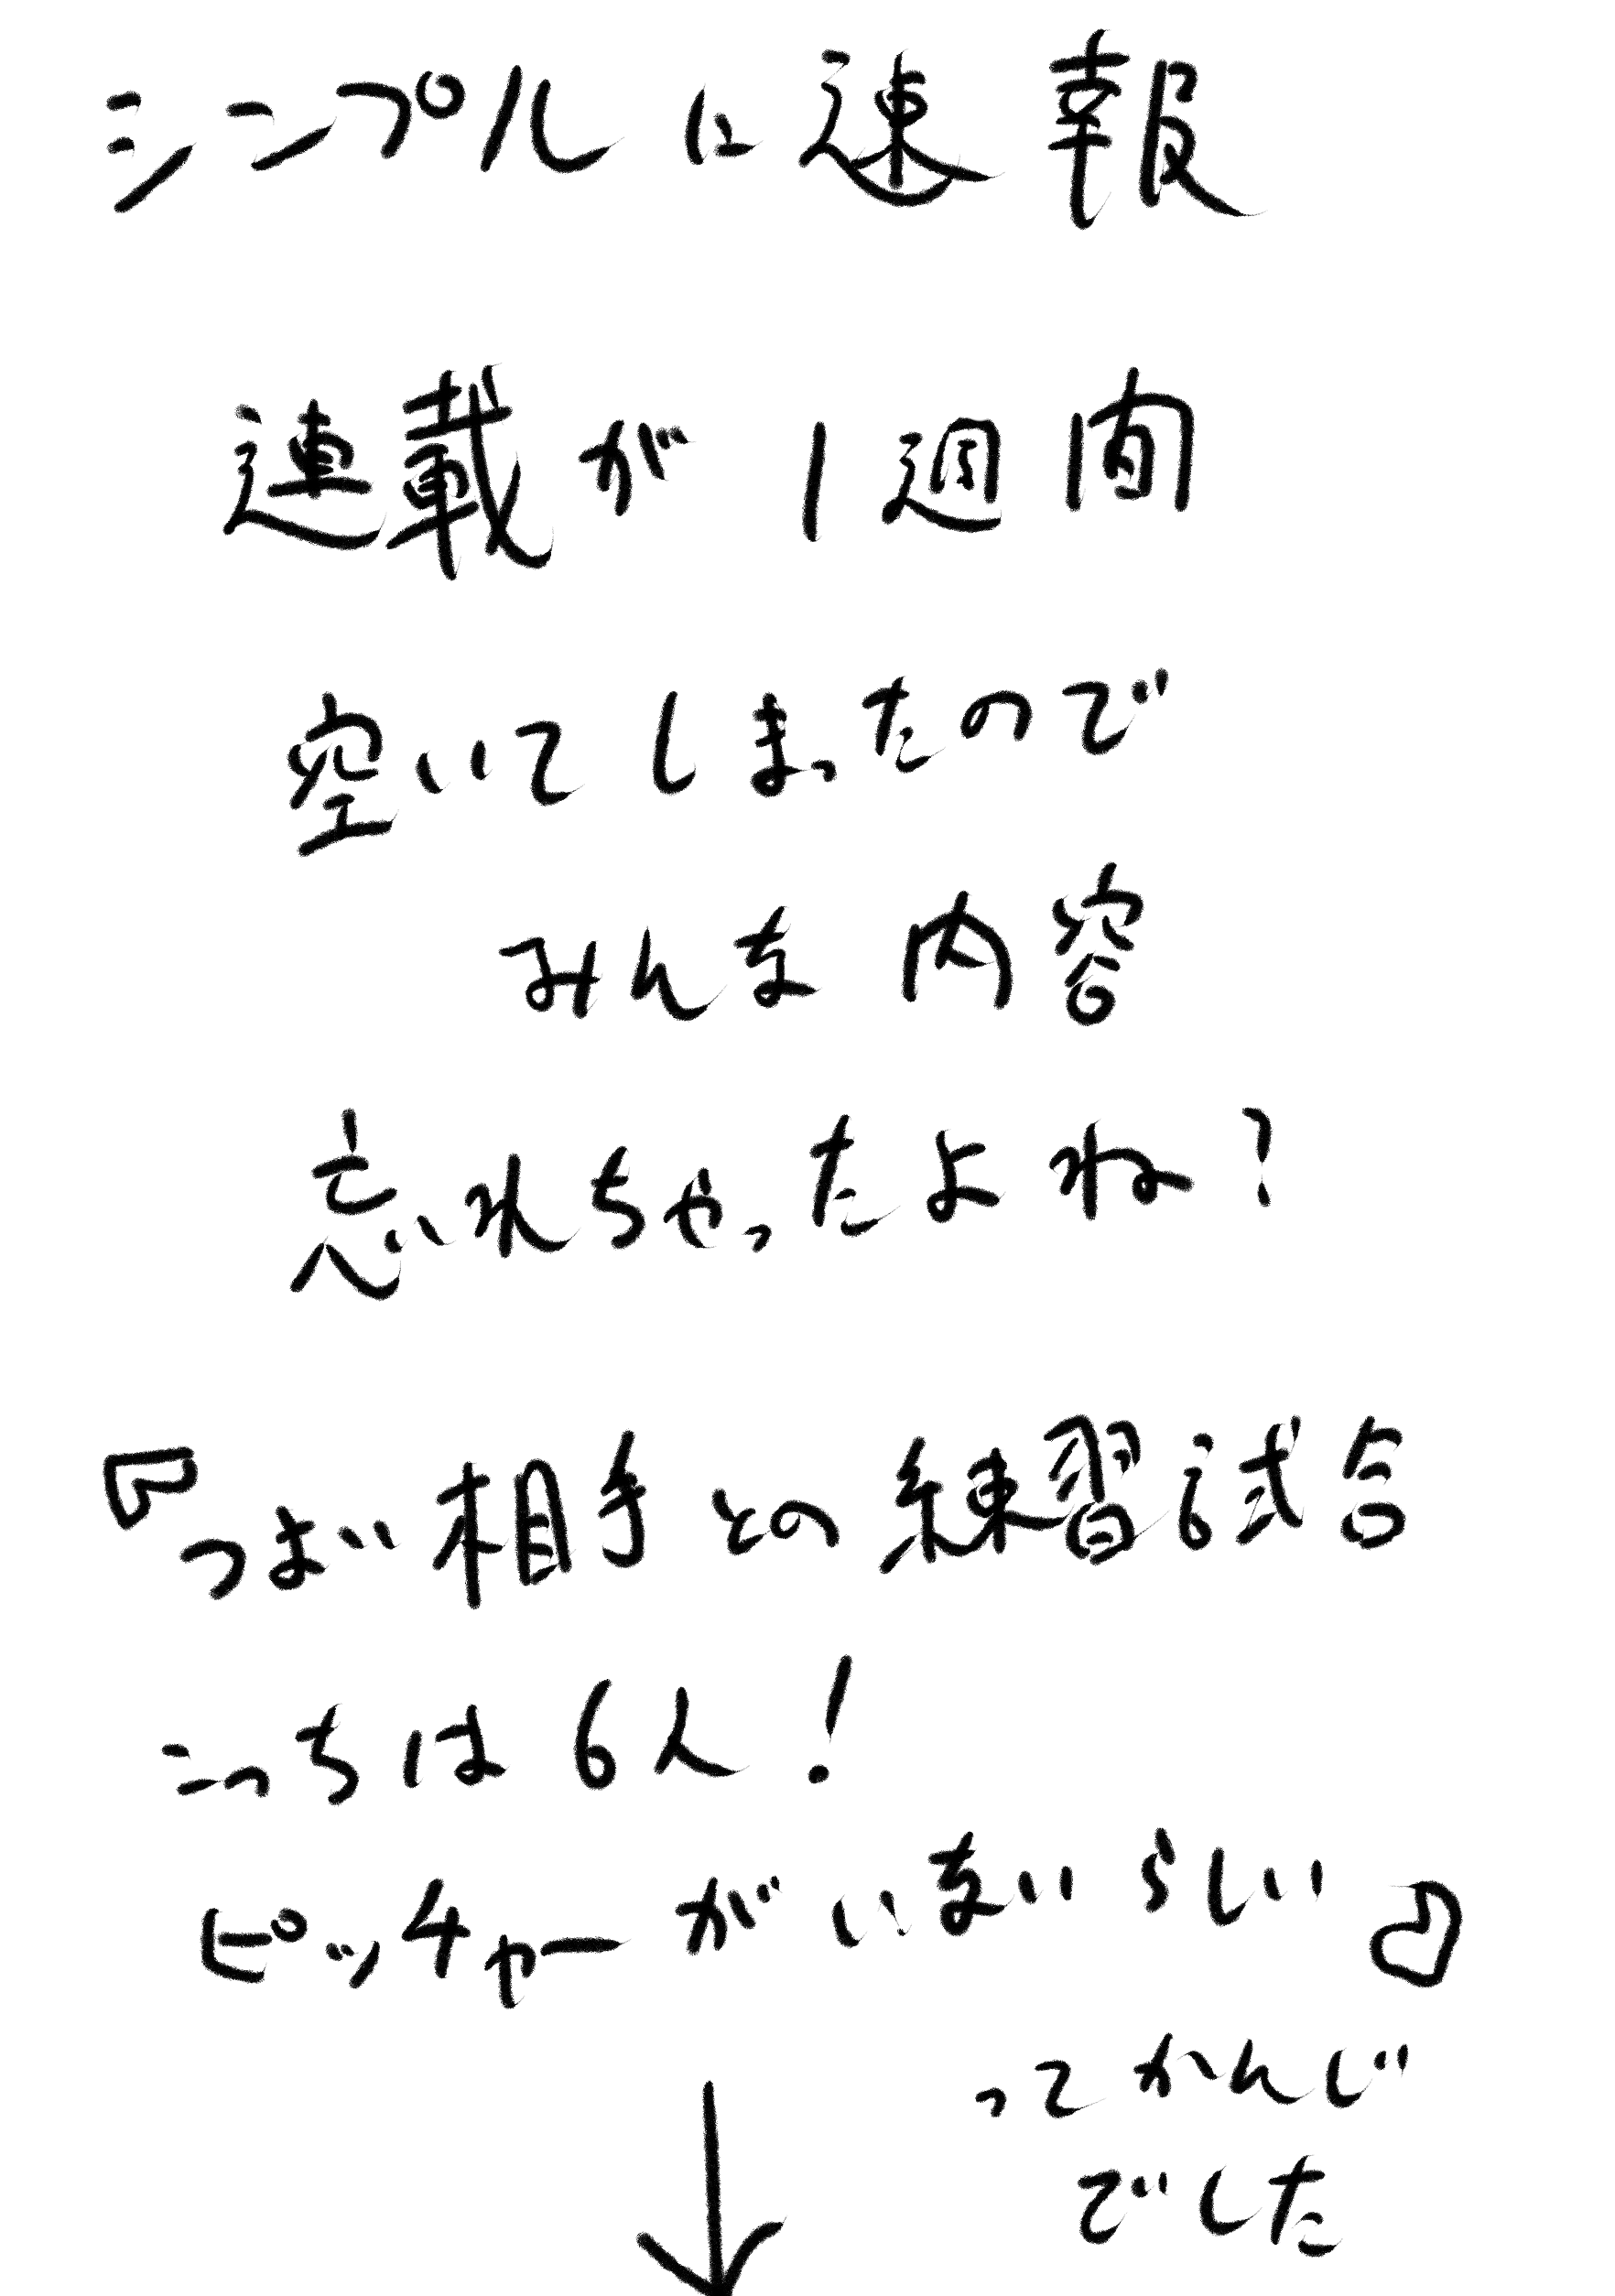 シンプルに速報
連載が1週間
空いてしまったので
みんな内容
忘れちゃったよね?
『つよい相手との練習試合
こっちは6人!
ピッチャーがいないらしい』
ってかんじ
でした